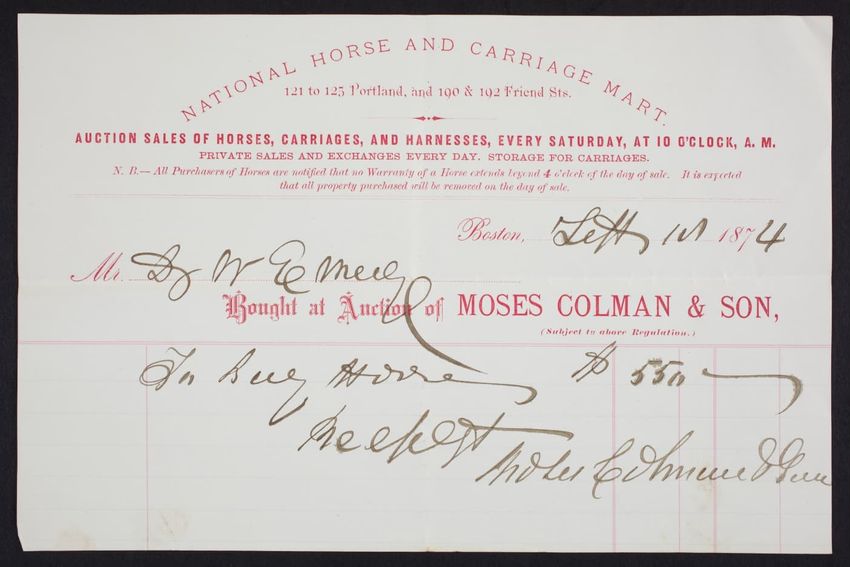 NATIONAL HORSE AND CARRIAGE MART.
121 to 125 Portland, and 190 & 192 Friend Sts.
AUCTION SALES OF HORSES, CARRIAGES, AND HARNESSES, EVERY SATURDAY, AT 10 O'CLOCK, A. M.
PRIVATE SALES AND EXCHANGES EVERY DAY. STORAGE FOR CARRIAGES.
N. B.— All Purchasers of Horses are notified that no Warranty of a Horse extends beyond 4 o'clock of the day of sale. It is expected
that all property purchased will be removed on the day of sale.
Boston, Sept 1st 1874
Mr. Dr W E
Bought at Auction of MOSES COLMAN & SON,
(Subject to above Regulation.)
To Horse $ 550
Moses Colman & Son